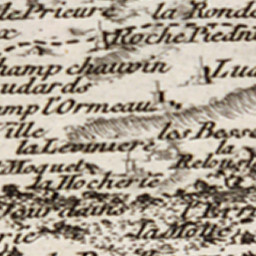 le Prieure la Ronde
x Roche Piedni
hamp chauvin
Lud
udards
mp l'Ormeau
ville les Bosse
la Leviniere la
Moquet Relou
la Hocherie
Jourdains
rie la Motte